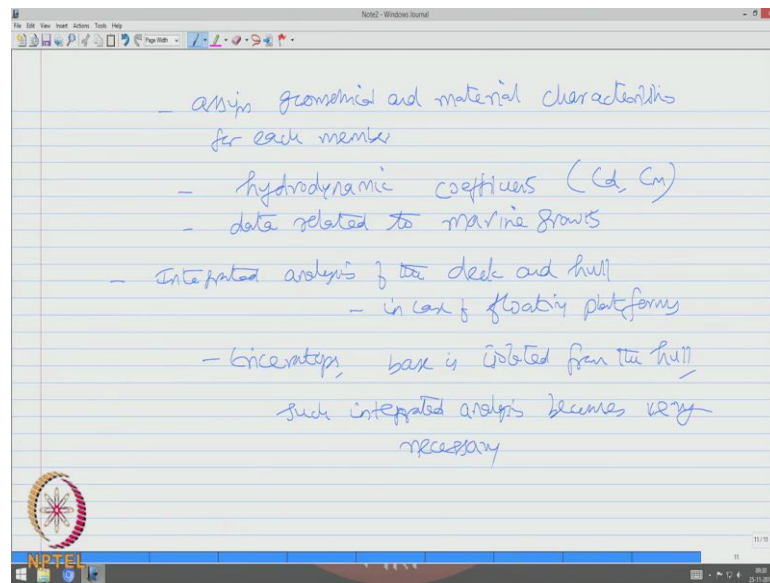 Note2 - Windows Journal
File Edit View Insert Actions Tools Help
Page Width
- assign geometrical and material characteristics
for each member
- hydrodynamic coefficients (Cd, Cm)
- data related to marine growth
- Integrated analysis of the deck and hull
- in case of floating platforms
- triceratops, base is isolated from the hull,
such integrated analysis becomes very
necessary
NPTEL
11/11
11